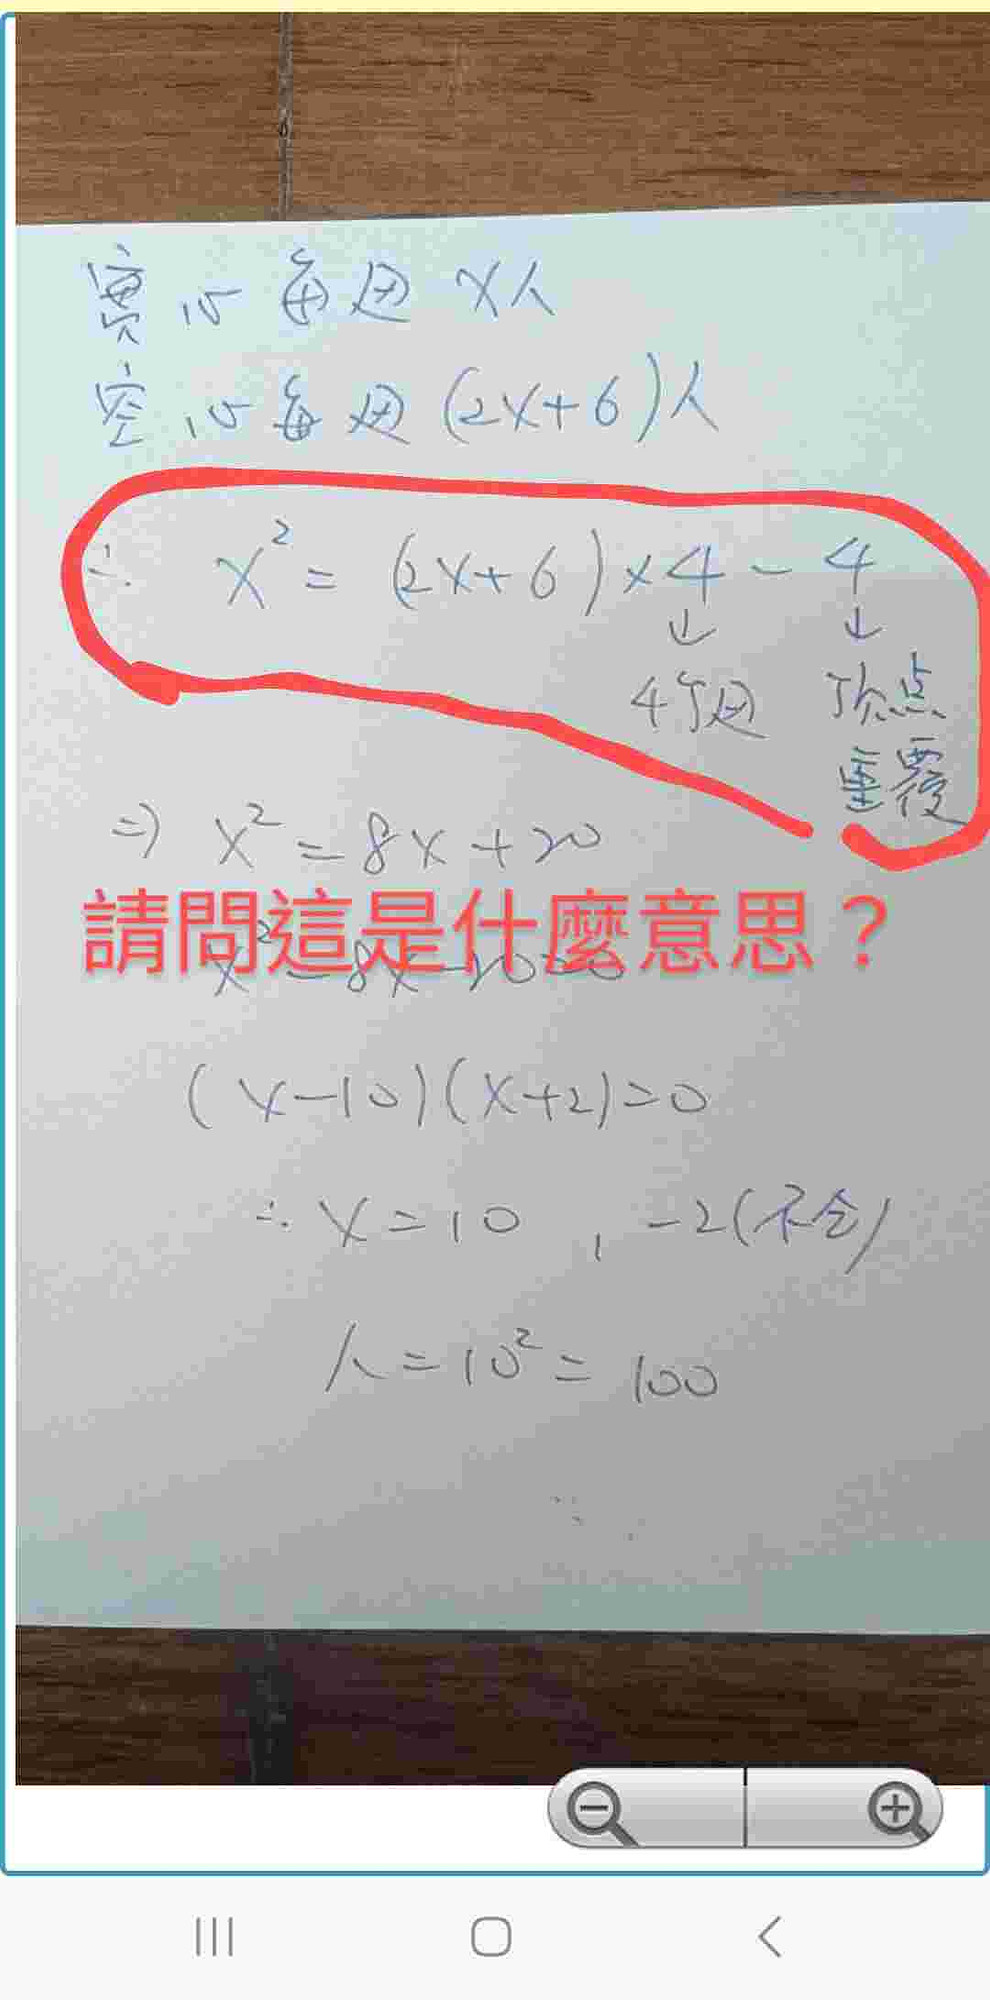 實心每邊 x人
空心每邊 (2x+6)人
∴ x² = (2x+6)×4 - 4
↓ ↓
4個邊 頂点
重覆
⇒ x² = 8x+20
請問這是什麼意思？
x² - 8x - 20 = 0
(x-10)(x+2)=0
∴ x=10 , -2(不合)
人=10²=100